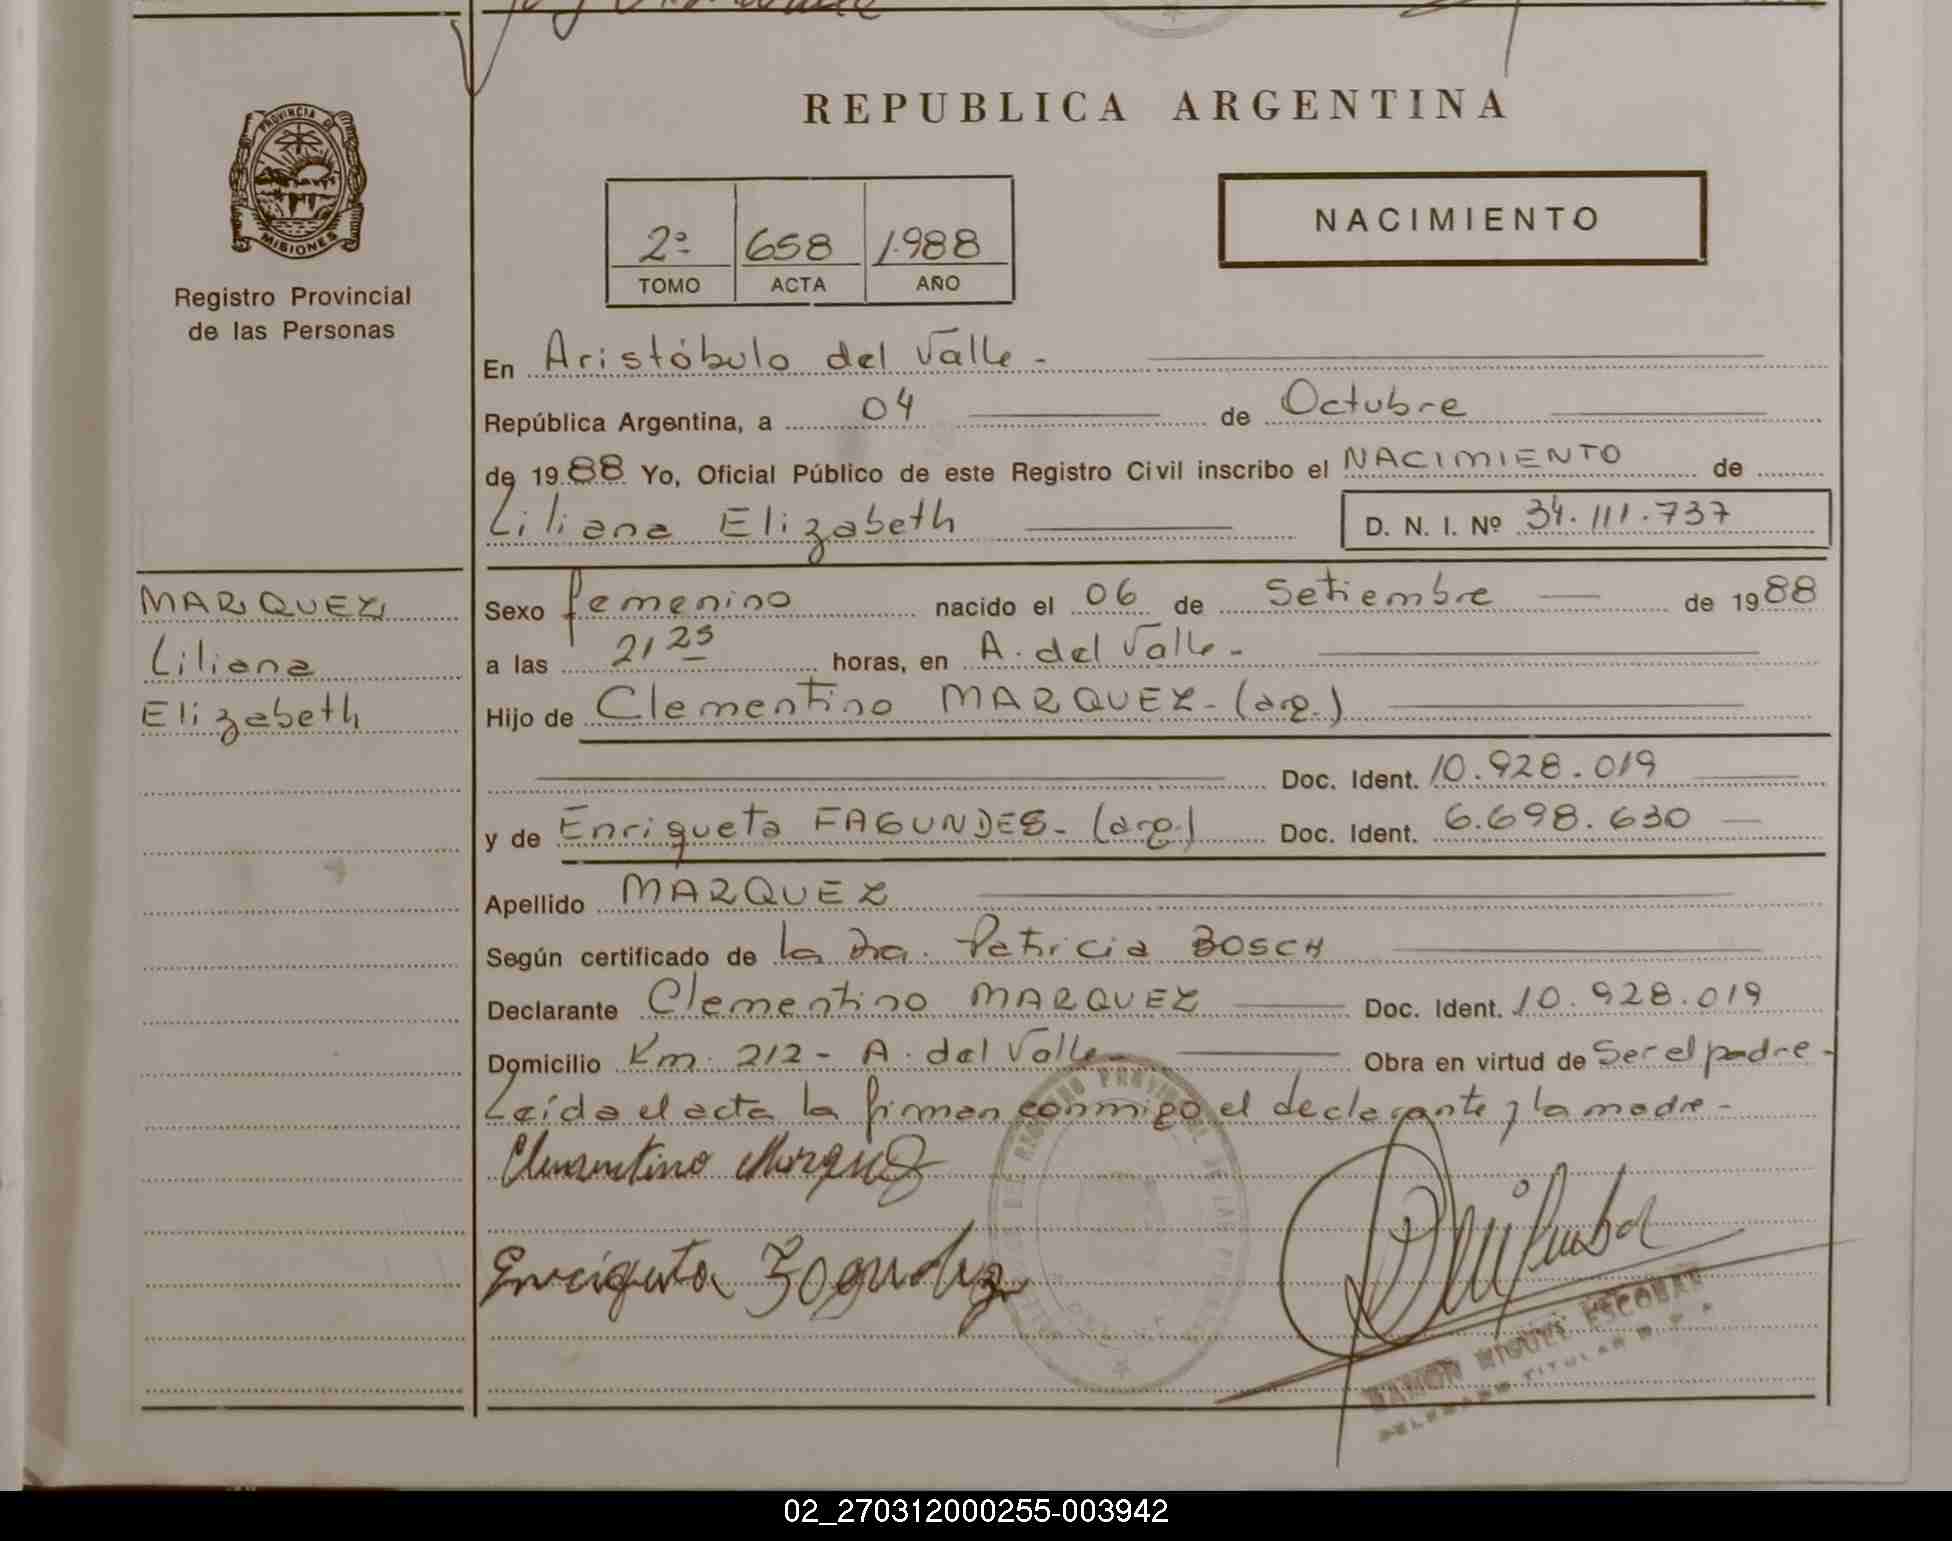 REPUBLICA ARGENTINA
PROVINCIA DE
MISIONES
Registro Provincial
de las Personas
2º 658 1.988
TOMO ACTA AÑO
NACIMIENTO
En Aristóbulo del Valle -
República Argentina, a 04 de Octubre
de 1988 Yo, Oficial Público de este Registro Civil inscribo el NACIMIENTO de
Liliana Elizabeth D. N. I. Nº 34.111.737
MARQUEZ
Liliana
Elizabeth
Sexo femenino nacido el 06 de Setiembre de 1988
a las 21 25 horas, en A. del Valle -
Hijo de Clementino MARQUEZ - (arg.)
Doc. Ident. 10.928.019
y de Enriqueta FAGUNDES - (arg.) Doc. Ident. 6.698.630
Apellido MARQUEZ
Según certificado de la Dra. Patricia BOSCH
Declarante Clementino MARQUEZ Doc. Ident. 10.928.019
Domicilio Km. 212 - A. del Valle - Obra en virtud de Ser el padre -
Leída el acta la firman conmigo el declarante y la madre -
Clementino Marquez
Enriqueta
RAMON MIGUEL ESCOBAR
DELEGADO TITULAR
02_270312000255-003942